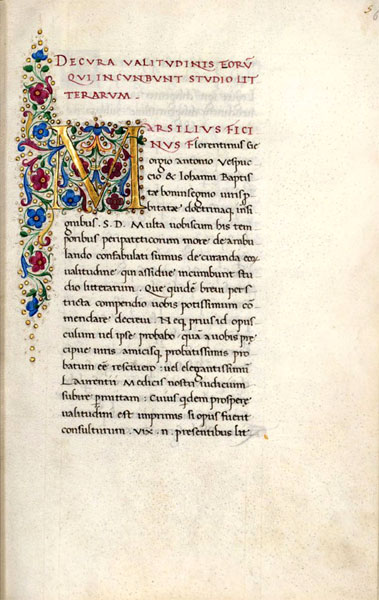 DE CURA VALITUDINIS EORŪ
QUI INCUNBUNT STUDIO LIT
TERARUM.
MARSILIUS FICI
NUS Florentinus Ge
orgio antonio Vespuc
cio & Iohanni Baptis
tæ boninsegnio uiris ꝓ
bitatæ doctrinaq; insi
gnibus. S. D. Multa uobiscum bis tem
poribus peripateticorum more deambu
lando confabulati sumus de curanda eoꝝ
ualitudine qui assidue incumbunt stu
dio litterarum. Que quidē breui per s
tricta compendio uobis potissimum cō
mendare decreui. Neq; prius id opus
culum uel ipse probabo quā a uobis pre
cipue uiris amicisq; probatissimis pro
batum eē resciuero: uel elegantissimī
Laurentii Medicis nostri iudicium
subire ꝑmittam: Cuius qdem prospere
ualitudini est imprimis si opus fuerit
consulturum. VIX. n. presentibus lit